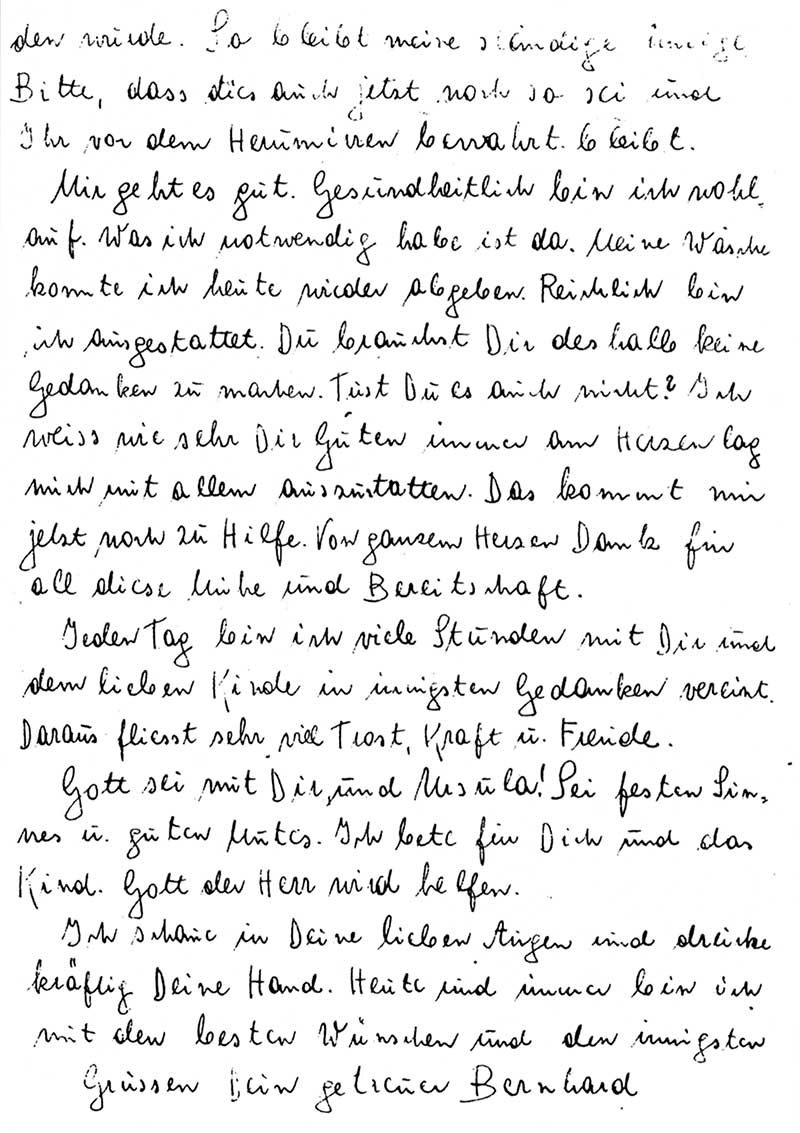 den würde. So bleibt meine ständige innige
Bitte, dass dies auch jetzt noch so sei und
Ihr vor dem Herumirren bewahrt bleibt.
Mir geht es gut. Gesundheitlich bin ich wohl-
auf. Was ich notwendig habe ist da. Meine Wäsche
konnte ich heute wieder abgeben. Reichlich bin
ich ausgestattet. Du brauchst Dir deshalb keine
Gedanken zu machen. Tust Du es auch nicht? Ich
weiss wie sehr Dir Guten immer am Herzen lag
mich mit allem auszustatten. Das kommt mir
jetzt noch zu Hilfe. Von ganzem Herzen Dank für
all diese Mühe und Bereitschaft.
Jeden Tag bin ich viele Stunden mit Dir und
dem lieben Kinde in innigsten Gedanken vereint.
Daraus fliesst sehr viel Trost, Kraft u. Freude.
Gott sei mit Dir und Ursula! Sei festen Sin-
nes u. guten Mutes. Ich bete für Dich und das
Kind. Gott der Herr wird helfen.
Ich schaue in Deine lieben Augen und drücke
kräftig Deine Hand. Heute und immer bin ich
mit den besten Wünschen und den innigsten
Grüssen Dein getreuer Bernhard